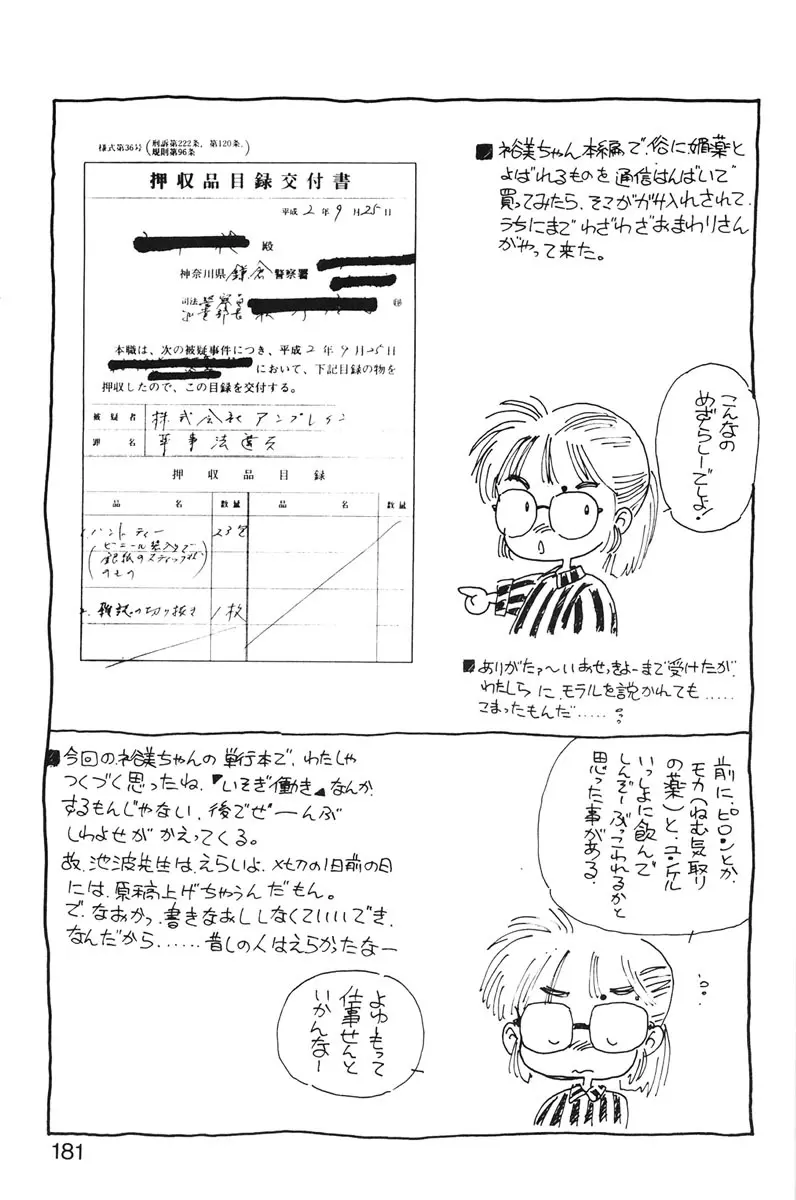 ■裕美ちゃん本編で、俗に媚薬と
よばれるものを通信はんばいで
買ってみたら、そこがガサ入れされて、
うちにまでわざわざおまわりさん
がやって来た。
様式第36号(刑訴第222条、第120条、
規則第96条)
押収品目録交付書
平成2年9月25日
殿
神奈川県鎌倉警察署
司法警察員
本職は、次の被疑事件につき、平成2年9月25日
において、下記目録の物を
押収したので、この目録を交付する。
被疑者 株式会社アンプレイン
罪名 薬事法違反
押収品目録
品名 数量 品名 数量
1. ハントティー 23包
(ビニール袋入りで
銀紙のスティック状
のもの)
2. 雑誌の切り抜き 1枚
こんなの
めずらしーでしょ!
■ありがたァ〜いおせっきょーまで受けたが、
わたしらにモラルを説かれても......
こまったもんだ......
前に、ピロンとか
モカ(ねむ気取り
の薬)と、ユンケル
いっしょに飲んで
しんぞーぶっこわれるかと
思った事がある。
■今回の裕美ちゃんの単行本で、わたしゃ
つくづく思ったね、『いそぎ働き』なんか
するもんじゃない、後でぜーんぶ
しわよせがかえってくる。
故、池波先生は、えらいよ、〆切の1日前の日
には、原稿上げちゃうんだもん。
で、なおかつ、書きなおししなくていいでき、
なんだから......昔しの人はえらかったなー
よゆーもって
仕事せんと
いかんなー
181